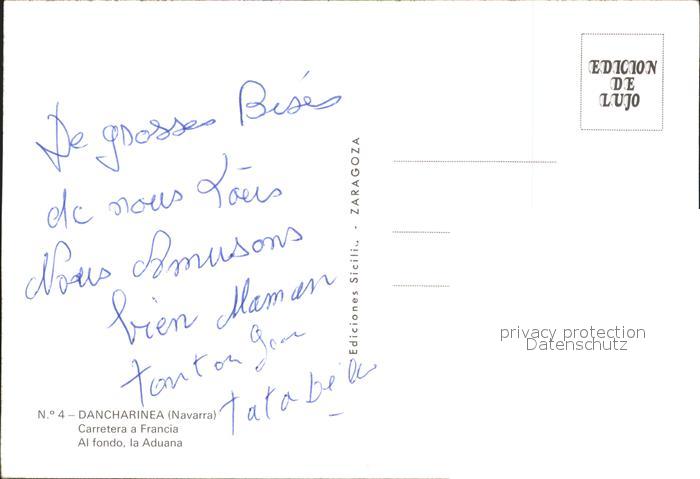 De grosses Bisés
de nous Tous
Nous Amusons
bien Maman
tonton
Tata
EDICION
DE
LUJO
Ediciones Sicili.. - ZARAGOZA
privacy protection
Datenschutz
N.º 4 – DANCHARINEA (Navarra)
Carretera a Francia
Al fondo, la Aduana